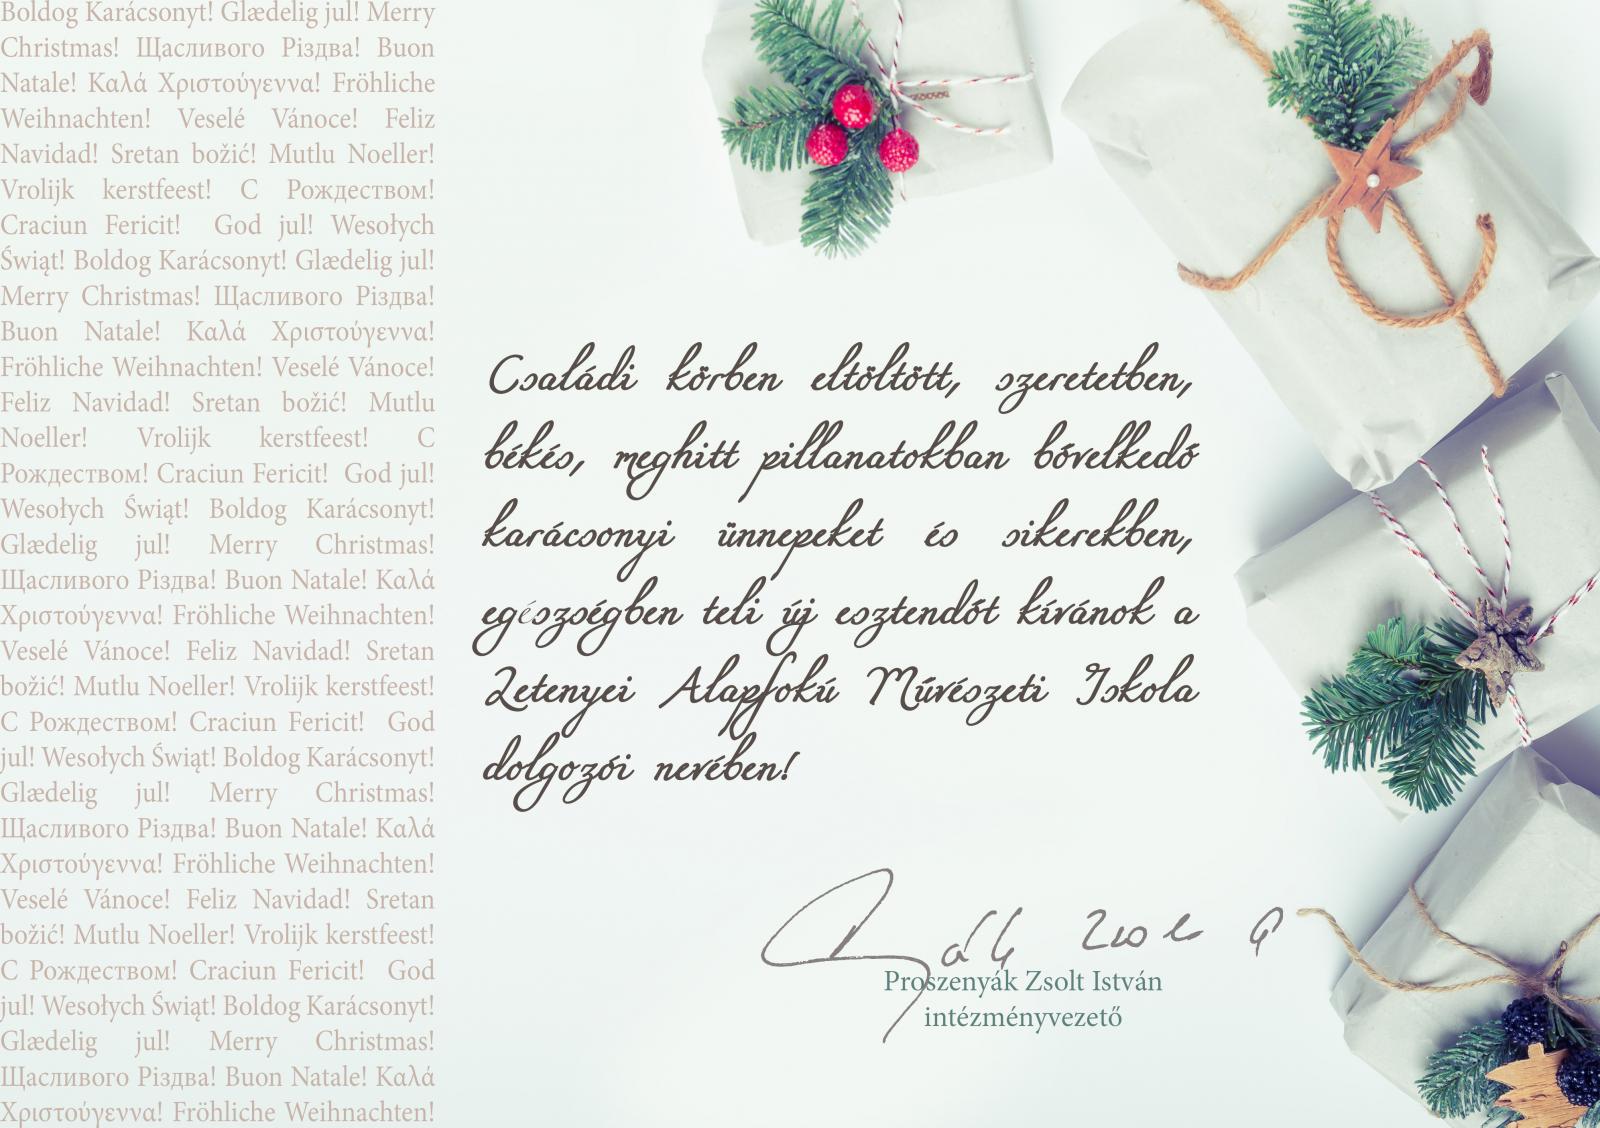 Boldog Karácsonyt! Glædelig jul! Merry
Christmas! Щасливого Різдва! Buon
Natale! Καλά Χριστούγεννα! Fröhliche
Weihnachten! Veselé Vánoce! Feliz
Navidad! Sretan božić! Mutlu Noeller!
Vrolijk kerstfeest! С Рождеством!
Craciun Fericit! God jul! Wesołych
Świąt! Boldog Karácsonyt! Glædelig jul!
Merry Christmas! Щасливого Різдва!
Buon Natale! Καλά Χριστούγεννα!
Fröhliche Weihnachten! Veselé Vánoce!
Feliz Navidad! Sretan božić! Mutlu
Noeller! Vrolijk kerstfeest! С
Рождеством! Craciun Fericit! God jul!
Wesołych Świąt! Boldog Karácsonyt!
Glædelig jul! Merry Christmas!
Щасливого Різдва! Buon Natale! Καλά
Χριστούγεννα! Fröhliche Weihnachten!
Veselé Vánoce! Feliz Navidad! Sretan
božić! Mutlu Noeller! Vrolijk kerstfeest!
С Рождеством! Craciun Fericit! God
jul! Wesołych Świąt! Boldog Karácsonyt!
Glædelig jul! Merry Christmas!
Щасливого Різдва! Buon Natale! Καλά
Χριστούγεννα! Fröhliche Weihnachten!
Veselé Vánoce! Feliz Navidad! Sretan
božić! Mutlu Noeller! Vrolijk kerstfeest!
С Рождеством! Craciun Fericit! God
jul! Wesołych Świąt! Boldog Karácsonyt!
Glædelig jul! Merry Christmas!
Щасливого Різдва! Buon Natale! Καλά
Χριστούγεννα! Fröhliche Weihnachten!
Családi körben eltöltött, szeretetben,
békés, meghitt pillanatokban bővelkedő
karácsonyi ünnepeket és sikerekben,
egészségben teli új esztendőt kívánok a
Letenyei Alapfokú Művészeti Iskola
dolgozói nevében!
Proszenyák Zsolt István
intézményvezető